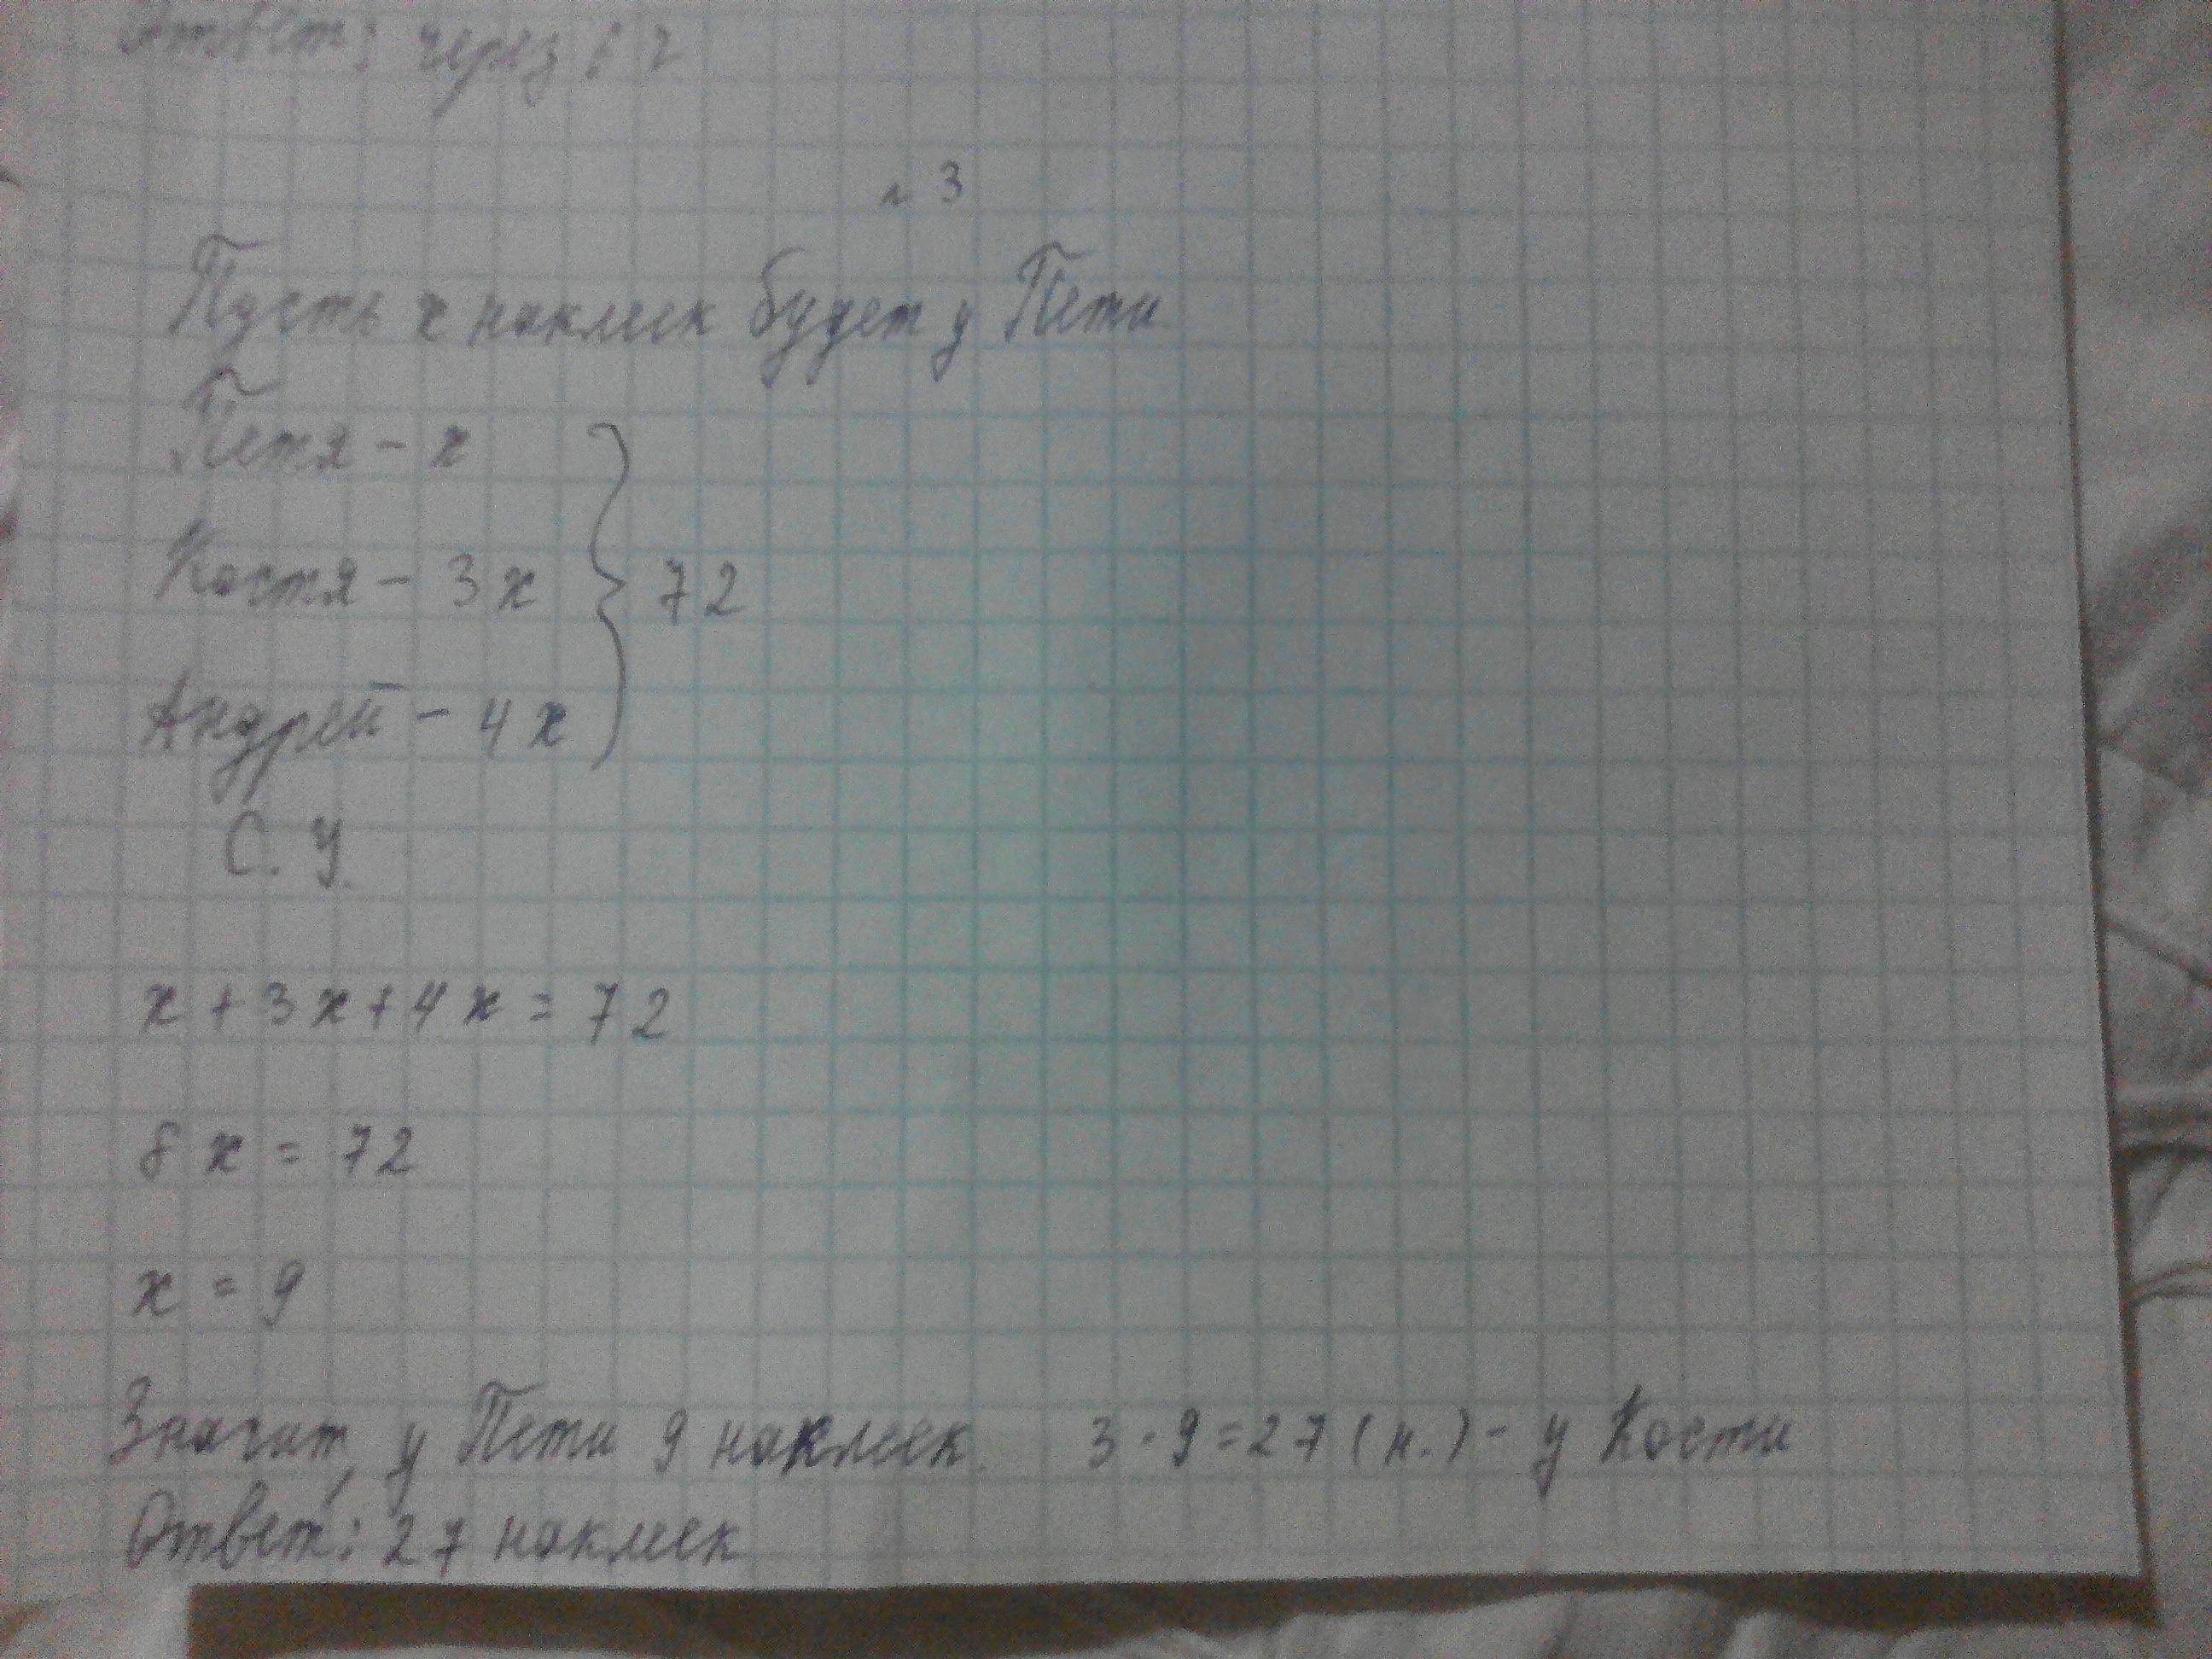 Ответ: через
№ 3
Пусть х наклеек будет у Пети
Петя – х
Костя – 3х
72
Андрей – 4х
С. У.
х + 3х + 4х = 72
8х = 72
х = 9
Значит, у Пети 9 наклеек. 3 · 9 = 27 (н.) - у Кости
Ответ: 27 наклеек